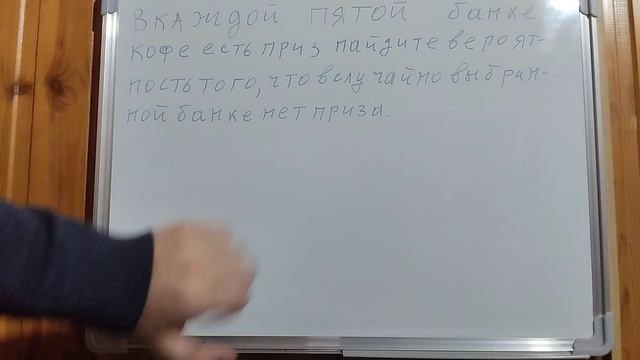 В КАЖДОЙ ПЯТОЙ банке
кофе есть приз. найдите вероят-
ность того, что в случайно выбран-
ной банке нет приза.